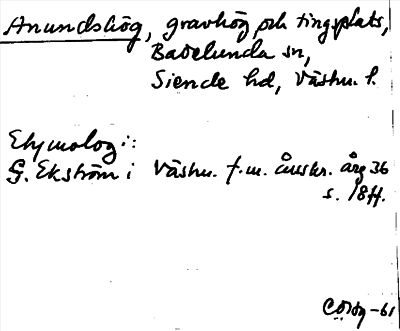 Anundshög, gravhög och tingsplats,
Badelunda sn,
Siende hd, Västm. l.
Etymologi:
G. Ekström i Västm. f.m. årsskr. årg 36
s. 18ff.